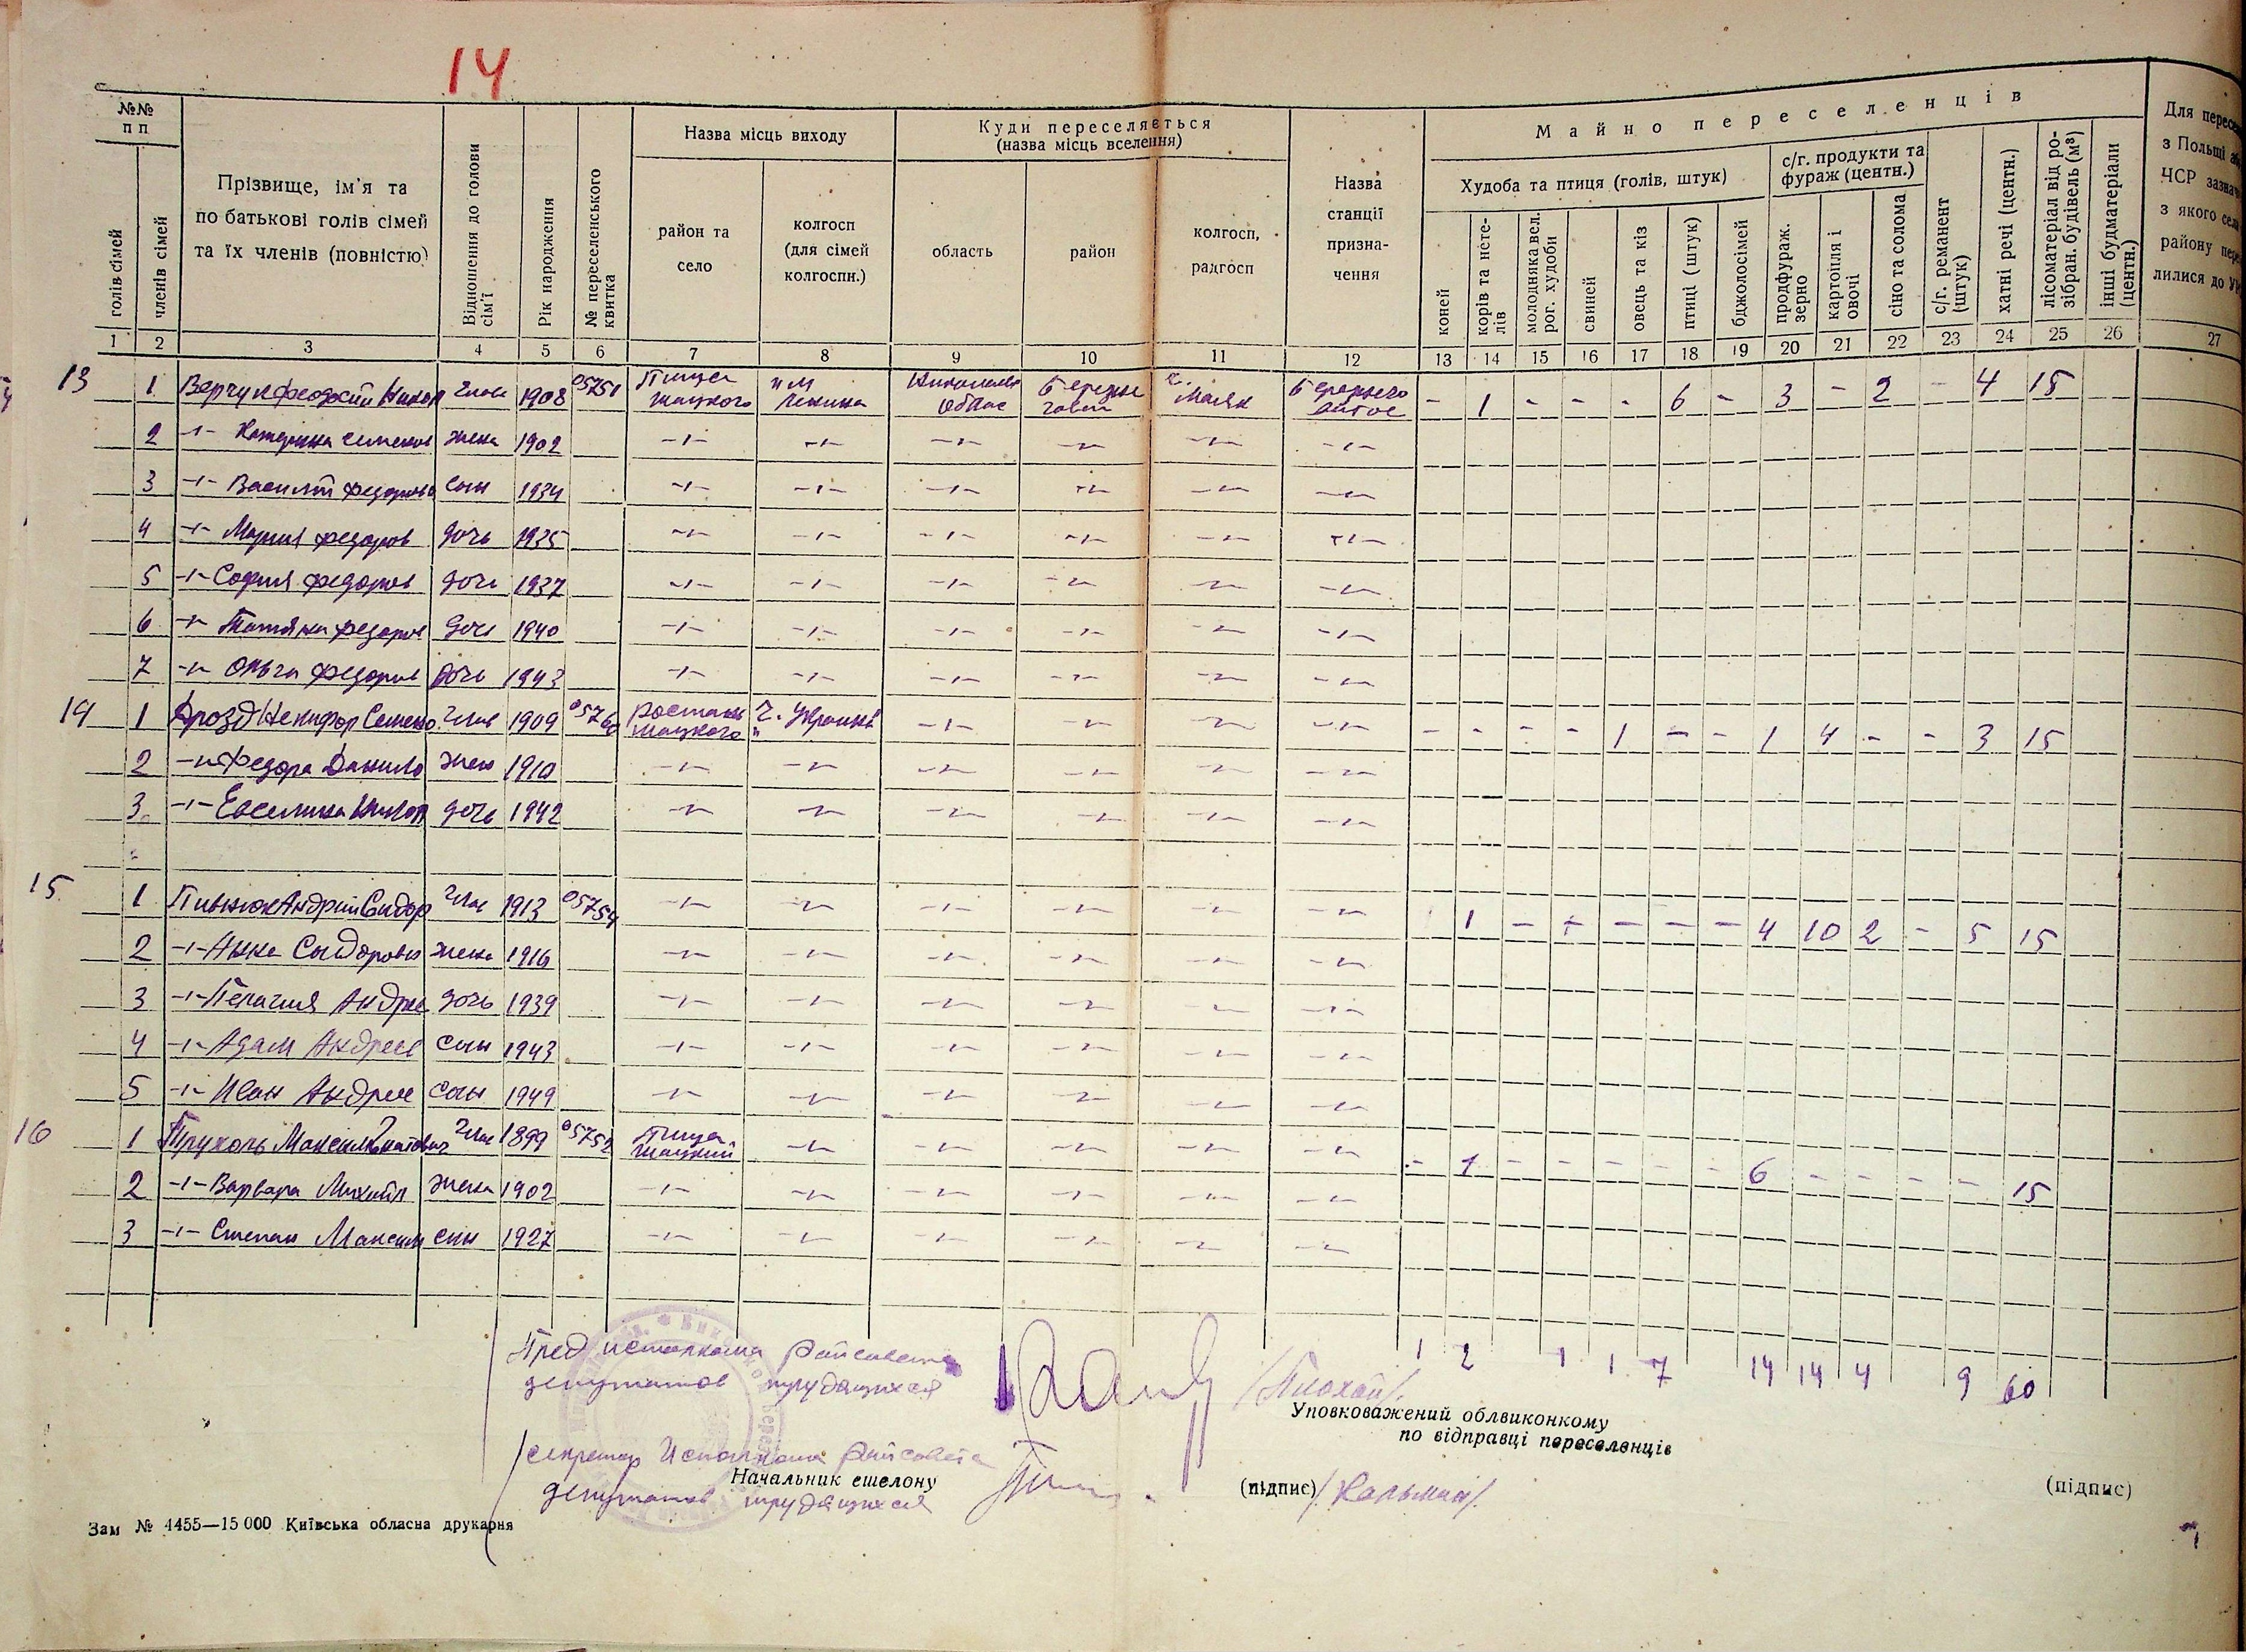 14
№№ п п
голів сімей
членів сімей
Прізвище, ім'я та по батькові голів сімей та їх членів (повністю)
Відношення до голови сім'ї
Рік народження
№ переселенського квитка
Назва місць виходу
район та село
колгосп (для сімей колгоспн.)
Куди переселяється (назва місць вселення)
область
район
колгосп, радгосп
Назва станції призначення
Майно переселенців
Худоба та птиця (голів, штук)
коней
корів та нетелів
молодняка вел. рог. худоби
свиней
овець та кіз
птиці (штук)
бджолосімей
с/г. продукти та фураж (центн.)
продфураж. зерно
картопля і овочі
сіно та солома
с/г. реманент (штук)
хатні речі (центн.)
лісоматеріал від розібран. будівель (м³)
інші будматеріали (центн.)
Для пересе
з Польщі аб
ЧСР зазнач
з якого села
району пере
лилися до У
1 2 3 4 5 6 7 8 9 10 11 12 13 14 15 16 17 18 19 20 21 22 23 24 25 26 27
13 1 1908 05751 Пища шацкого им Ленина Маяк - 1 - - - 6 - 3 - 2 - 4 15
2 -"- жена 1902 -"- -"- -"- -"- -"- -"-
3 -"- сын 1934 -"- -"- -"- -"- -"- -"-
4 -"- Мария федоров дочь 1935 -"- -"- -"- -"- -"- -"-
5 -"- София федоров дочь 1937 -"- -"- -"- -"- -"- -"-
6 -"- Татяна федоров дочь 1940 -"- -"- -"- -"- -"- -"-
7 -"- Ольга федоров дочь 1943 -"- -"- -"- -"- -"- -"-
14 1 Дрозд Некифор Семено 1909 0576 шацкого -"- -"- -"- -"- - - - - 1 - - 1 4 - - 3 15
2 -"- федора Данило жен 1910 -"- -"- -"- -"- -"- -"-
3 -"- дочь 1942 -"- -"- -"- -"- -"- -"-
15 1 Андрий Сидор 1913 05754 -"- -"- -"- -"- -"- -"- 1 - - - - - 4 10 2 - 5 15
2 -"- Анна Сыдоровна жена 1916 -"- -"- -"- -"- -"- -"-
3 -"- Пелагия Андрее дочь 1939 -"- -"- -"- -"- -"- -"-
4 -"- Адам Андреев сын 1943 -"- -"- -"- -"- -"- -"-
5 -"- Иван Андрее сын 1949 -"- -"- -"- -"- -"- -"-
16 1 Максим 1899 05752 Пища шацкий -"- -"- -"- -"- -"- - 1 - - - - - 6 - - - - 15
2 -"- Варвара Михайл жена 1902 -"- -"- -"- -"- -"- -"-
3 -"- Степан Максим сын 1927 -"- -"- -"- -"- -"- -"-
1 2 1 1 7 14 14 4 9 60
Пред исполкома Райсовета
депутатов трудящихся
/Плохой/.
Уповноважений облвиконкому
по відправці переселенців
/секретар Исполкома Райсовета
Начальник ешелону
депутатов трудящихся
(підпис) /Кальман/.
(підпис)
Зам № 4455—15 000 Київська обласна друкарня